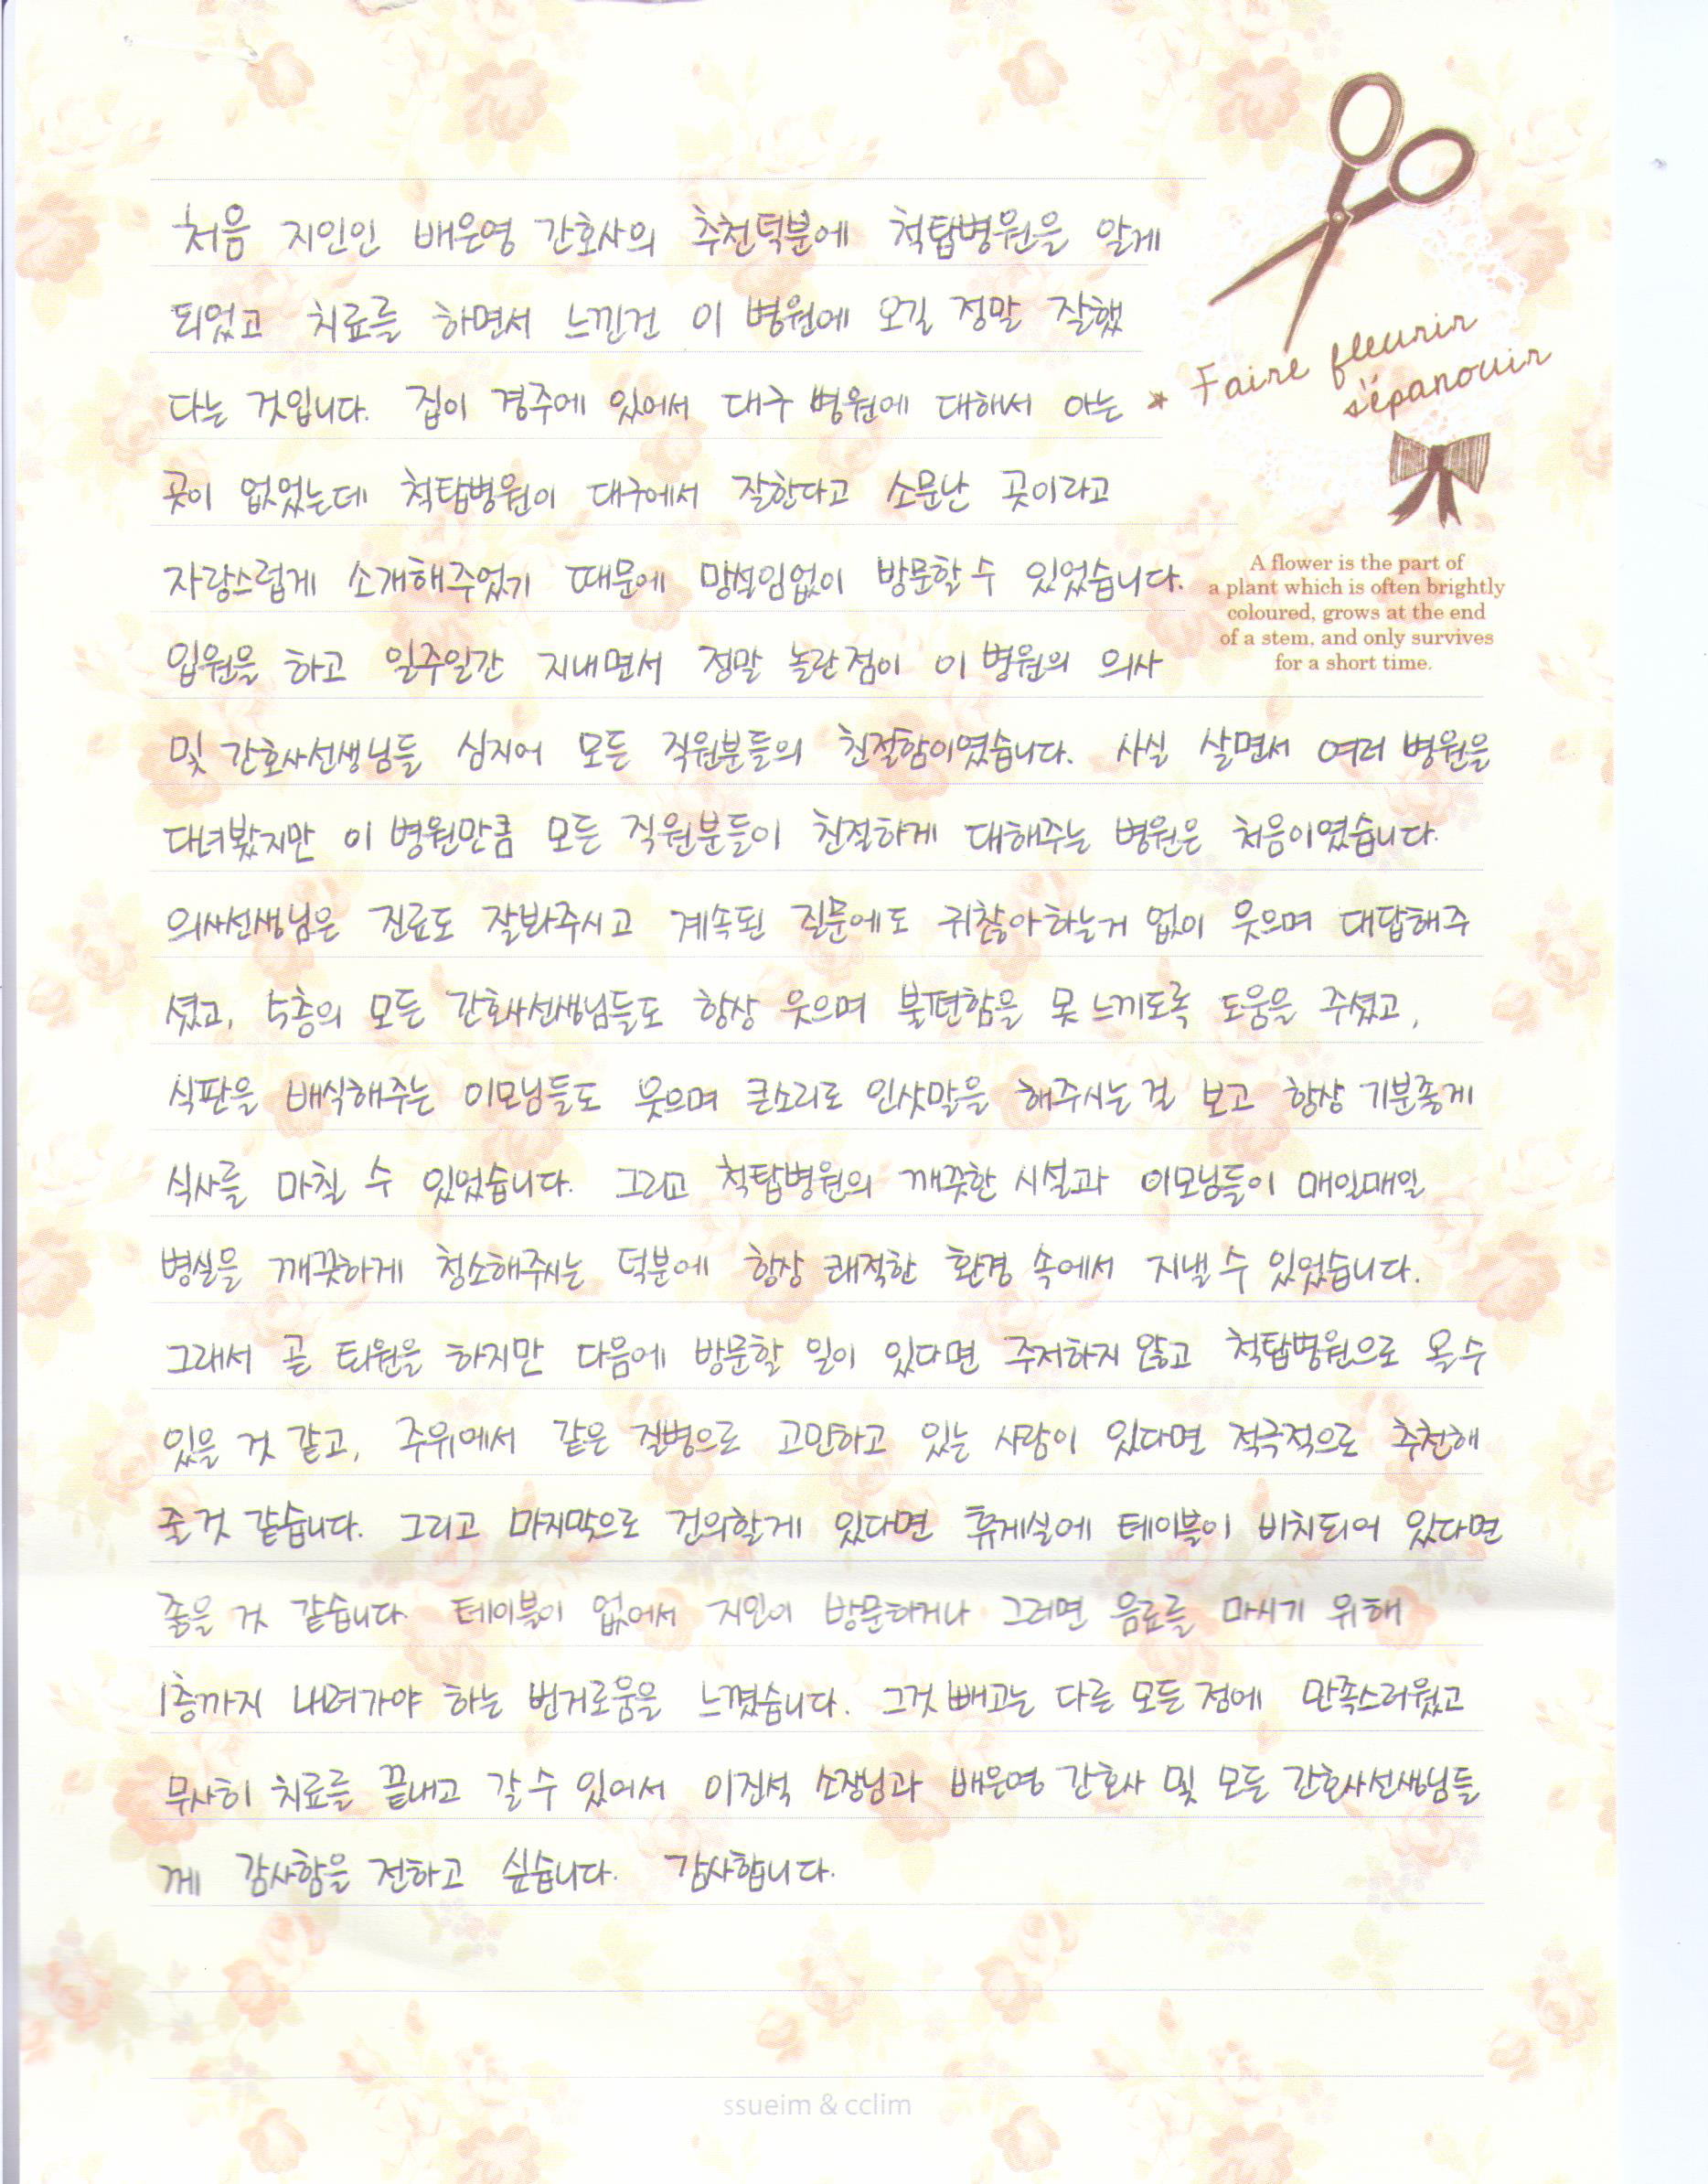 처음 지인인 배은영 간호사의 추천덕분에 척탑병원을 알게
되었고 치료를 하면서 느낀건 이 병원에 오길 정말 잘했
다는 것입니다. 집이 경주에 있어서 대구 병원에 대해서 아는
곳이 없었는데 척탑병원이 대구에서 잘한다고 소문난 곳이라고
자랑스럽게 소개해주었기 때문에 망설임없이 방문할 수 있었습니다.
입원을 하고 일주일간 지내면서 정말 놀란점이 이 병원의 의사
및 간호사선생님들 심지어 모든 직원분들의 친절함이였습니다. 사실 살면서 여러 병원을
다녀봤지만 이 병원만큼 모든 직원분들이 친절하게 대해주는 병원은 처음이였습니다.
의사선생님은 진료도 잘봐주시고 계속된 질문에도 귀찮아하는거 없이 웃으며 대답해주
셨고, 5층의 모든 간호사선생님들도 항상 웃으며 불편함을 못 느끼도록 도움을 주셨고,
식판을 배식해주는 이모님들도 웃으며 큰소리로 인삿말을 해주시는 걸 보고 항상 기분좋게
식사를 마칠 수 있었습니다. 그리고 척탑병원의 깨끗한 시설과 이모님들이 매일매일
병실을 깨끗하게 청소해주시는 덕분에 항상 쾌적한 환경 속에서 지낼 수 있었습니다.
그래서 곧 퇴원을 하지만 다음에 방문할 일이 있다면 주저하지 않고 척탑병원으로 올 수
있을 것 같고, 주위에서 같은 질병으로 고민하고 있는 사람이 있다면 적극적으로 추천해
줄것 같습니다. 그리고 마지막으로 건의할게 있다면 휴게실에 테이블이 비치되어 있다면
좋을 것 같습니다. 테이블이 없어서 지인이 방문하거나 그러면 음료를 마시기 위해
1층까지 내려가야 하는 번거로움을 느꼈습니다. 그것 빼고는 다른 모든 점에 만족스러웠고
무사히 치료를 끝내고 갈 수 있어서 이진석 소장님과 배은영 간호사 및 모든 간호사선생님들
께 감사함을 전하고 싶습니다. 감사합니다.
Faire fleurir
s'épanouir
A flower is the part of
a plant which is often brightly
coloured, grows at the end
of a stem, and only survives
for a short time.
ssueim & cclim